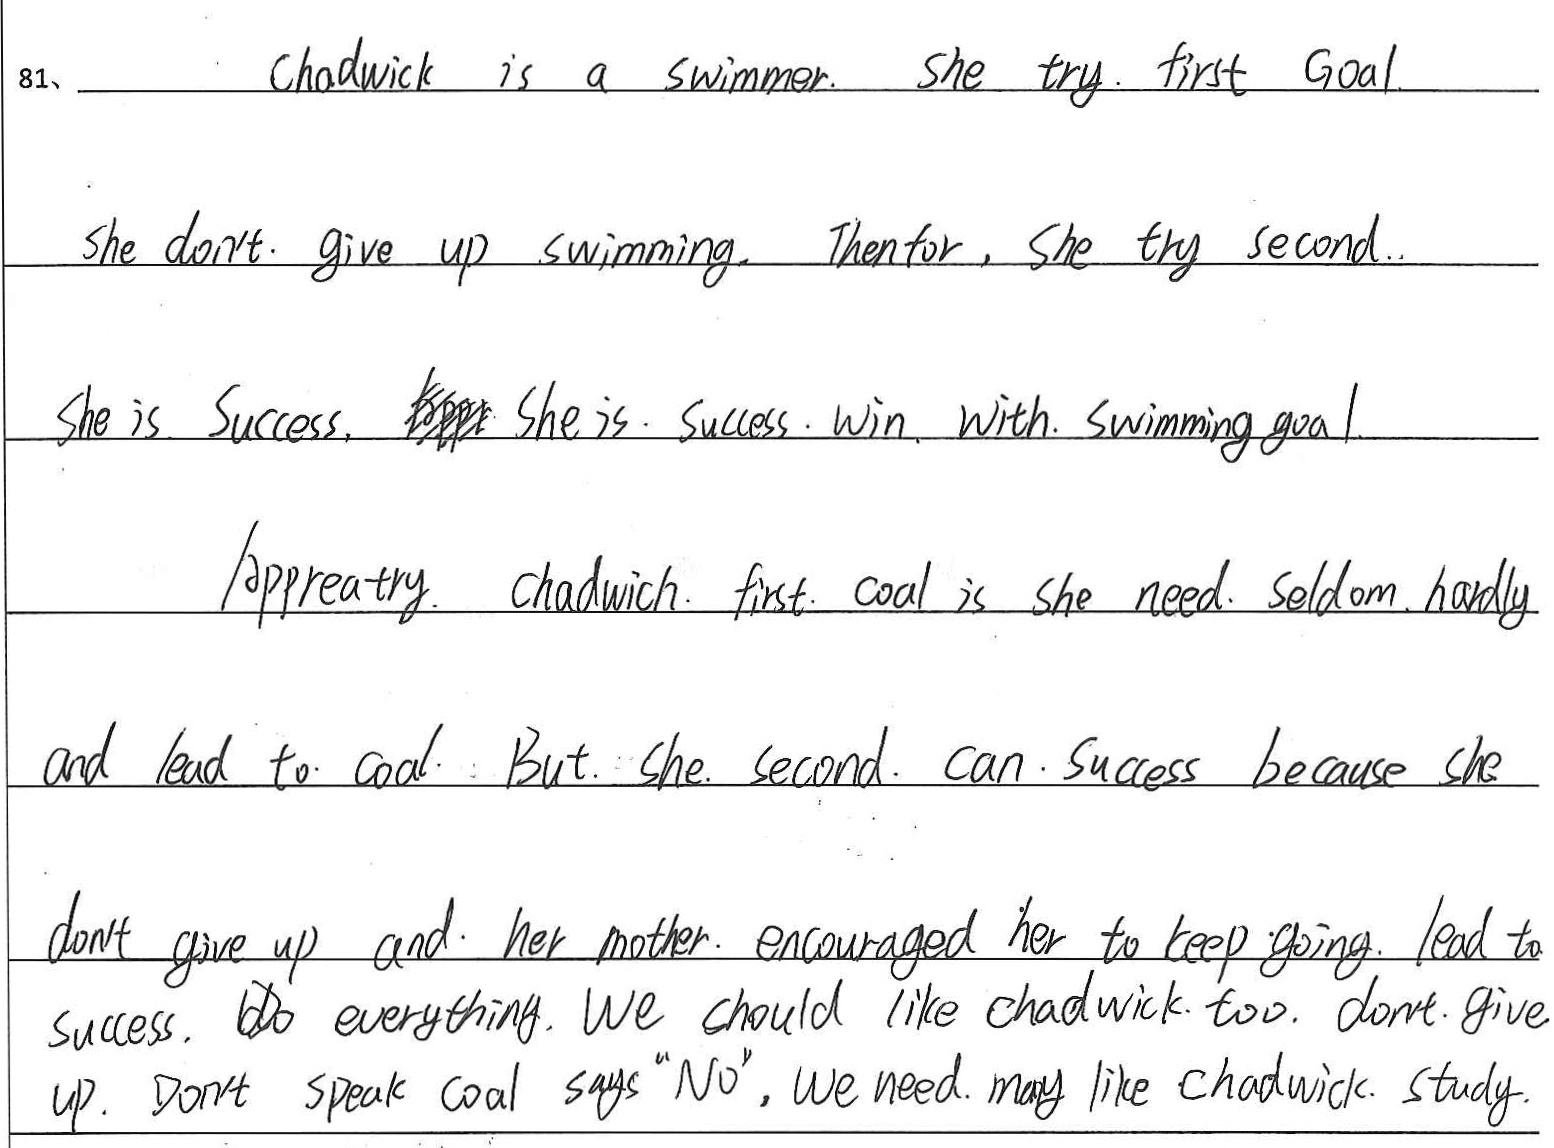 81、 Chadwick is a swimmer. She try. first Goal.
She don't. give up swimming. Thenfor, She try second..
She is Success, She is. success. win. with. swimming goal.
Chadwich. first. coal is she need. seldom. hardly
and lead to. coal. But. she. second. can. success because she
don't give up and. her mother. encouraged her to keep going. lead to
success. Do everything. We should like chadwick. too. don't. give
up. Don't speak coal says "No", we need. may like chadwick. study.